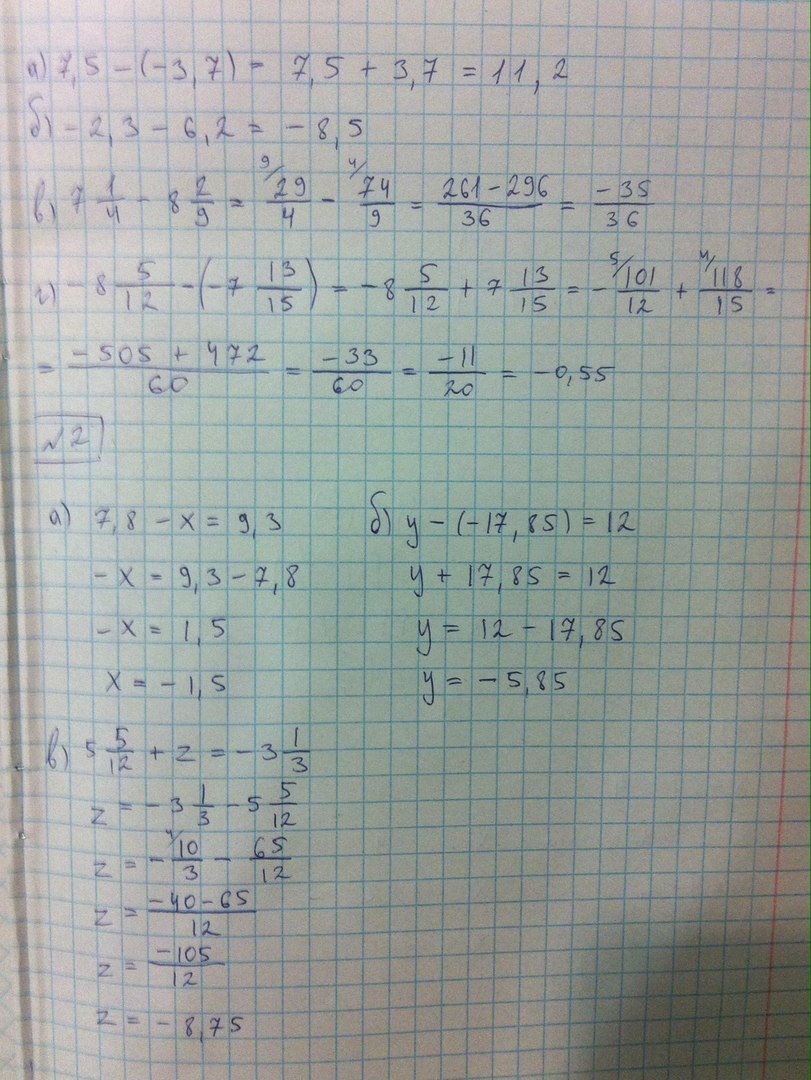 а) 7,5 - (-3,7) = 7,5 + 3,7 = 11,2
б) -2,3 - 6,2 = -8,5
в) 7 1/4 - 8 2/9 = 9/ 29/4 - 4/ 74/9 = (261 - 296)/36 = -35/36
г) -8 5/12 - (-7 13/15) = -8 5/12 + 7 13/15 = - 5/ 101/12 + 4/ 118/15 =
= (-505 + 472)/60 = -33/60 = -11/20 = -0,55
№2
а) 7,8 - x = 9,3
-x = 9,3 - 7,8
-x = 1,5
x = -1,5
б) y - (-17,85) = 12
y + 17,85 = 12
y = 12 - 17,85
y = -5,85
в) 5 5/12 + z = -3 1/3
z = -3 1/3 - 5 5/12
z = - 4/ 10/3 - 65/12
z = (-40 - 65)/12
z = -105/12
z = -8,75